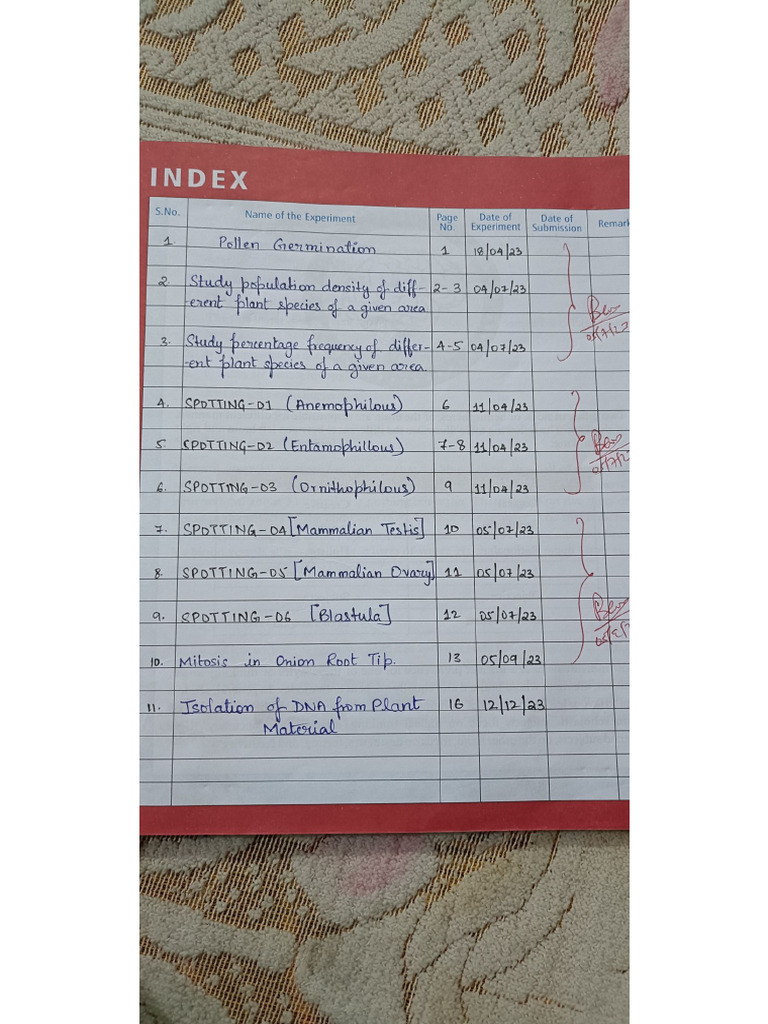 INDEX
S.No. Name of the Experiment Page No. Date of Experiment Date of Submission Remark
1 Pollen Germination 1 18/04/23
2 Study population density of diff- 2-3 04/07/23
-erent plant species of a given area
3. Study percentage frequency of differ- 4-5 04/07/23
-ent plant species of a given area.
4. SPOTTING-01 (Anemophilous) 6 11/04/23
5. SPOTTING-02 (Entamophillous) 7-8 11/04/23
6. SPOTTING-03 (Ornithophilous) 9 11/04/23
7. SPOTTING-04 [Mammalian Testis] 10 05/07/23
8. SPOTTING-05 [Mammalian Ovary] 11 05/07/23
9. SPOTTING-06 [Blastula] 12 05/07/23
10. Mitosis in Onion Root Tip. 13 05/09/23
11. Isolation of DNA from Plant 16 12/12/23
Material